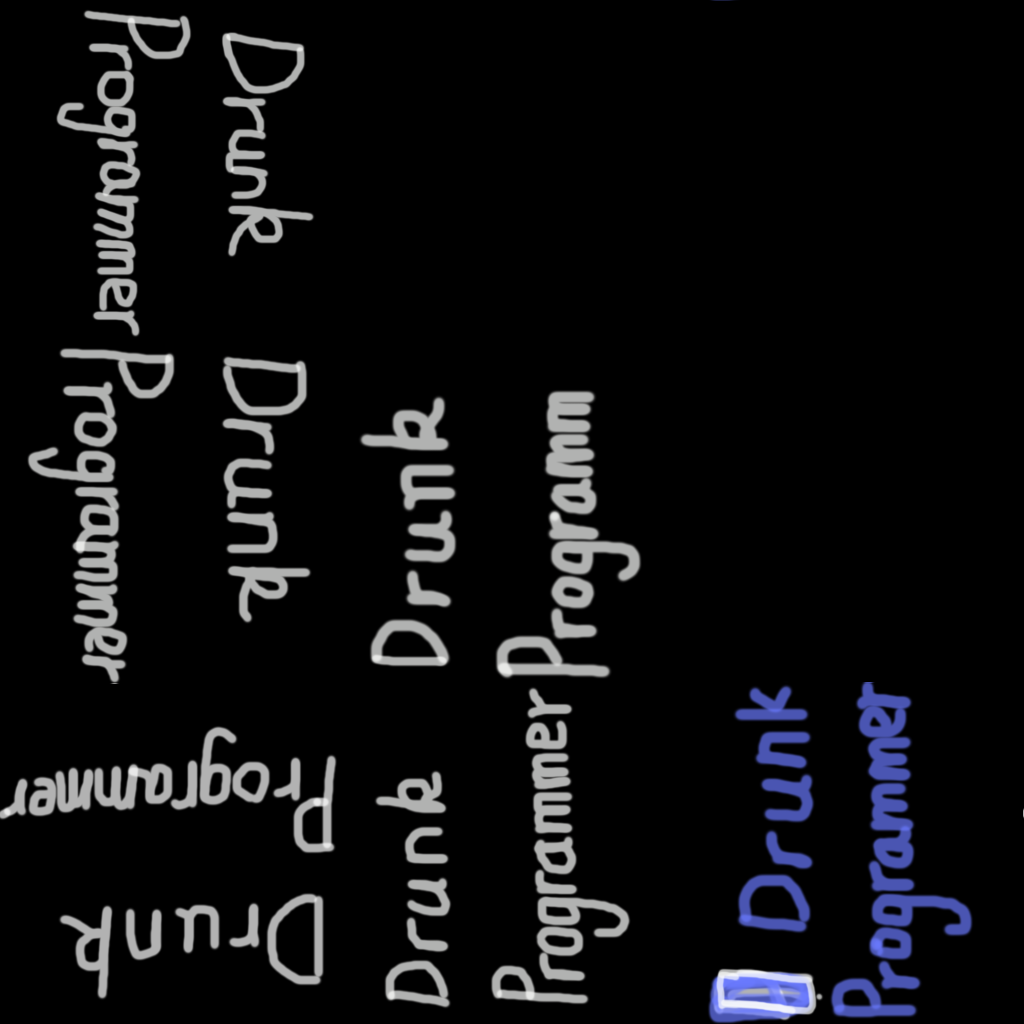 Drunk
Programmer
Drunk
Programmer
Drunk
Programm
Drunk
Programmer
Drunk
Programmer
Drunk
Programmer